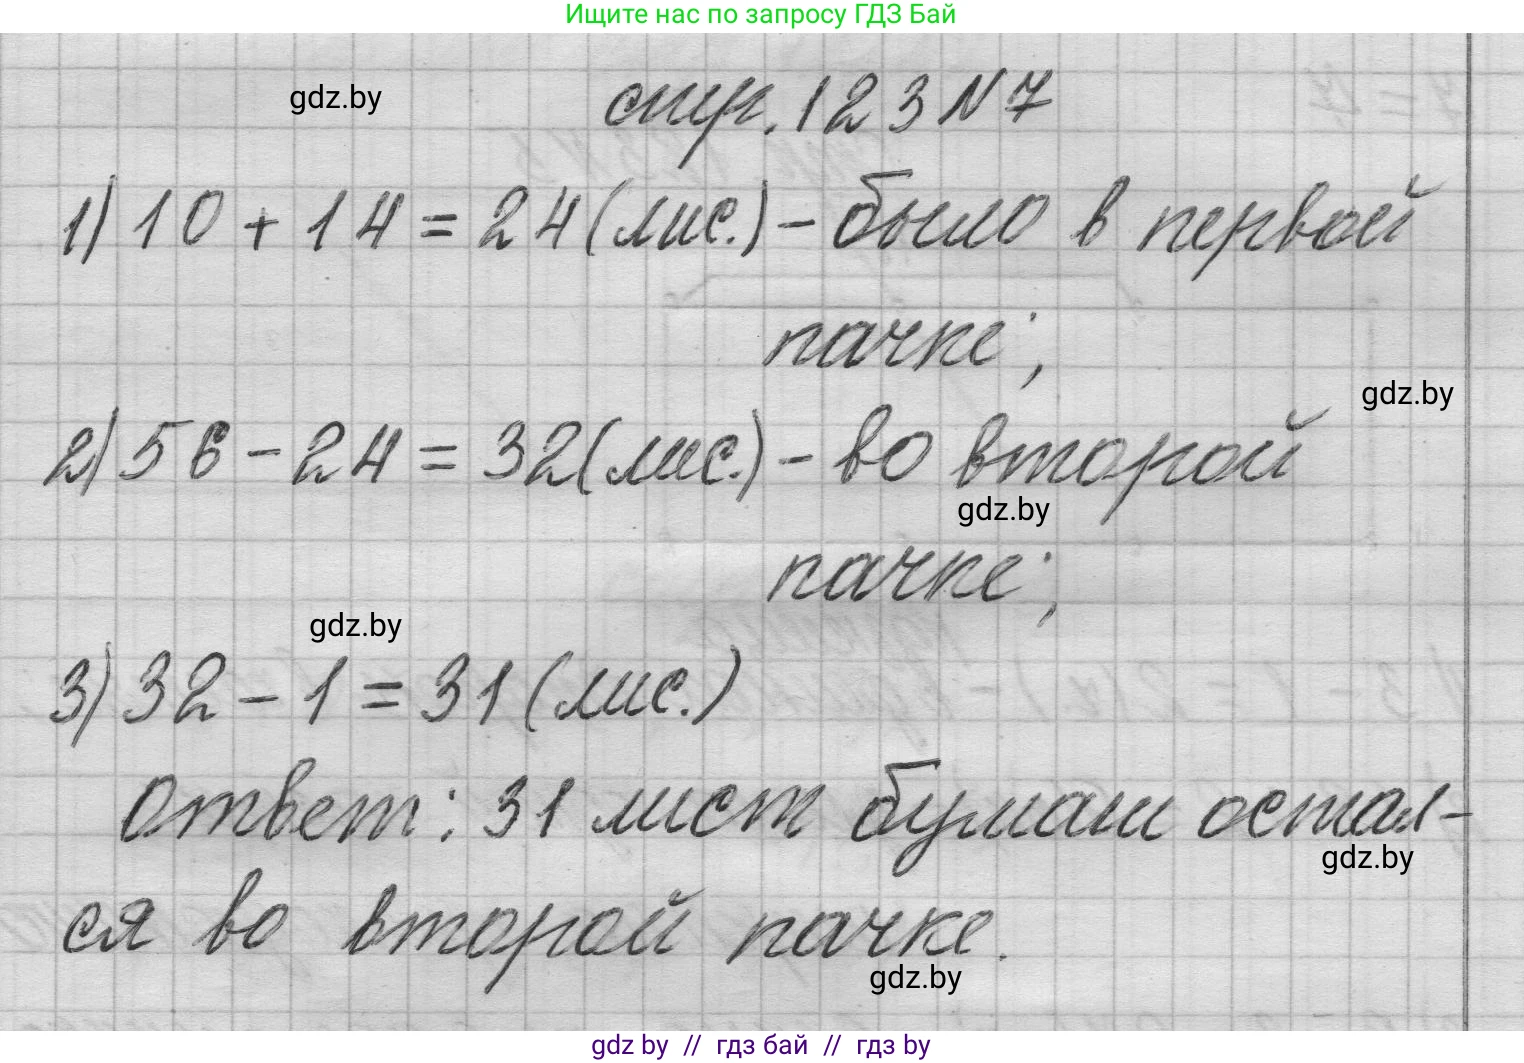 Ищите нас по запросу ГДЗ Бай
gdz.by
стр. 123 N 7
1) 10 + 14 = 24 (лис.) - было в первой
пачке;
gdz.by
2) 56 - 24 = 32 (лис.) - во второй
gdz.by
пачке;
gdz.by
3) 32 - 1 = 31 (лис.)
Ответ: 31 лист бумаги остал-
gdz.by
ся во второй пачке.
gdz.by
gdz by // гдз бай // гдз by